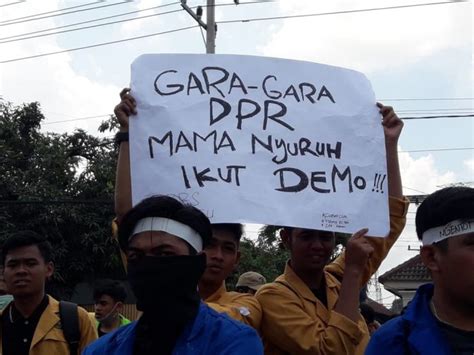 GARA-GARA
DPR
MAMA NYURUH
IKUT DEMO !!!